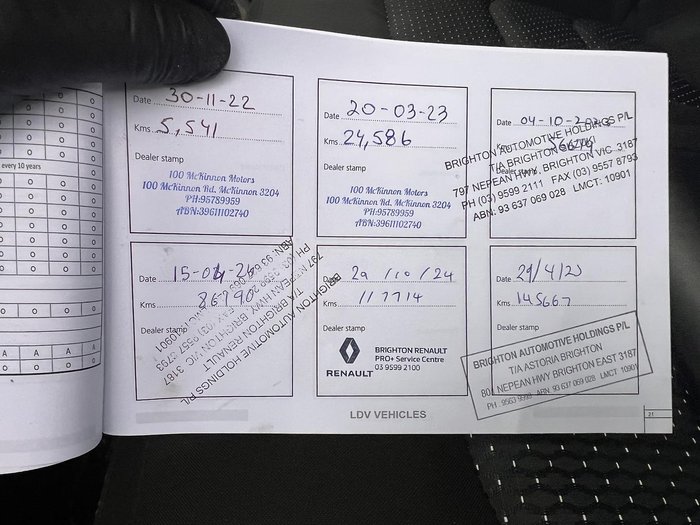 every 10 years
Date 30-11-22
Kms 5,541
Dealer stamp
100 McKinnon Motors
100 McKinnon Rd. McKinnon 3204
PH:95789959
ABN:39611102740
Date 20-03-23
Kms 24,586
Dealer stamp
100 McKinnon Motors
100 McKinnon Rd. McKinnon 3204
PH:95789959
ABN:39611102740
Date 04-10-2023
Dealer stamp
BRIGHTON AUTOMOTIVE HOLDINGS P/L
T/A BRIGHTON
797 NEPEAN HWY, BRIGHTON VIC 3187
PH (03) 9599 2111 FAX (03) 9557 8793
ABN: 93 637 069 028 LMCT: 10901
Date 15-04-24
Kms 86790
Dealer stamp
BRIGHTON AUTOMOTIVE HOLDINGS P/L
T/A BRIGHTON RENAULT
797 NEPEAN HWY, BRIGHTON VIC 3187
Date 29/10/24
Kms 117714
Dealer stamp
RENAULT
BRIGHTON RENAULT
PRO+ Service Centre
03 9599 2100
Date 29/4/25
Kms 145667
Dealer stamp
BRIGHTON AUTOMOTIVE HOLDINGS P/L
T/A ASTORIA BRIGHTON
NEPEAN HWY BRIGHTON EAST 3187
ABN 93 637 069 028 LMCT: 10901
LDV VEHICLES
21